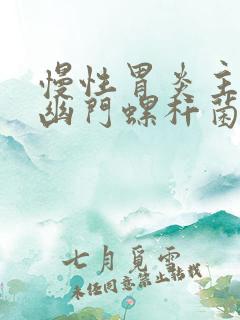 慢性胃炎主
幽门螺杆菌
七月觅雪
未经同意禁止转载